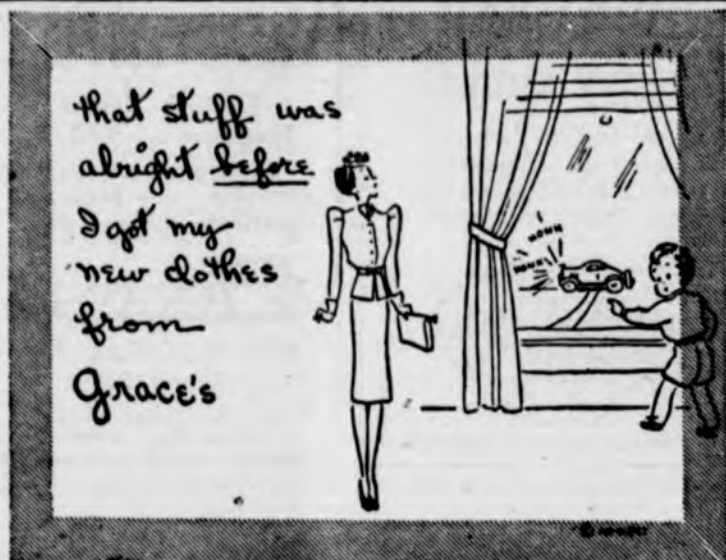 that stuff was
alright before
I got my
new clothes
from
Grace's
HONK
HONK